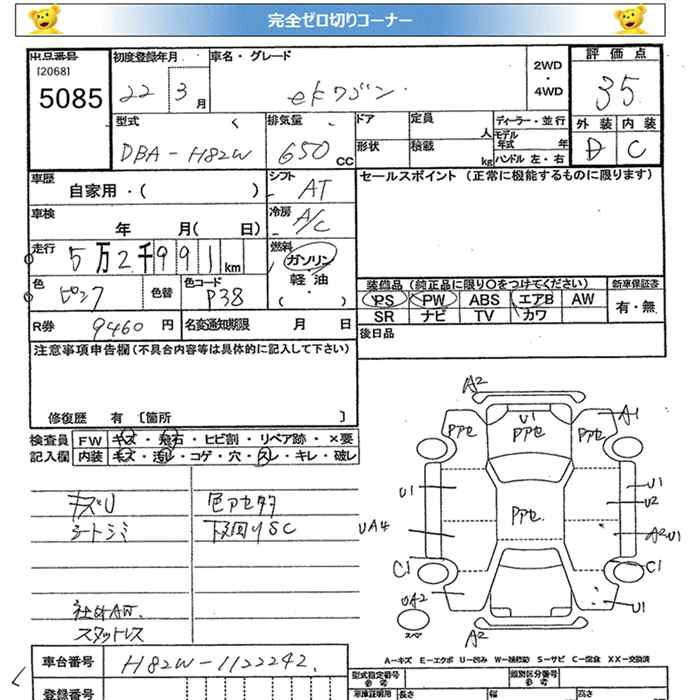 完全ゼロ切りコーナー
出品番号 初度登録年月 車名・グレード 2WD・4WD 評価点
[2068]
5085 22 3月 ekワゴン 35
型式 排気量 ドア 定員 人 ディーラー・並行 外装 内装
DBA-H82W 650 CC 形状 積載 kg モデル年式 年 ハンドル 左・右 D C
車歴 自家用・( ) シフト AT セールスポイント (正常に機能するものに限ります)
車検 年 月( 日) 冷房 A/C
走行 5万2千991km 燃料 ガソリン・軽油
色 ピンク 色替 色コード P38 ( ・ )
装備品 (純正品に限り○をつけてください) 新車保証書
PS PW ABS エアB AW 有・無
SR ナビ TV カワ
R券 9460円 名変通知期限 月 日
後日品
注意事項申告欄 (不具合内容等は具体的に記入して下さい)
修復歴 有 [箇所 ]
検査員 FW キズ・飛石・ヒビ割・リペア跡・×要
記入欄 内装 キズ・汚レ・コゲ・穴・スレ・キレ・破レ
キズU 色アセ多
シートシミ 下回りSC
社外AW
スタッドレス
A2
A1
U1
Pアセ Pアセ Pアセ
U1 U1
U2
Pアセ
UA4 A2 U1
C1 C1
UA2 U1
スペア
A2
A-キズ E-エクボ U-凹み W-補修跡 S-サビ C-腐食 XX-交換済
車台番号 H82W-1122242
型式指定番号 参考 類別区分番号 参考
登録番号 車庫証明用 長さ 幅 高さ